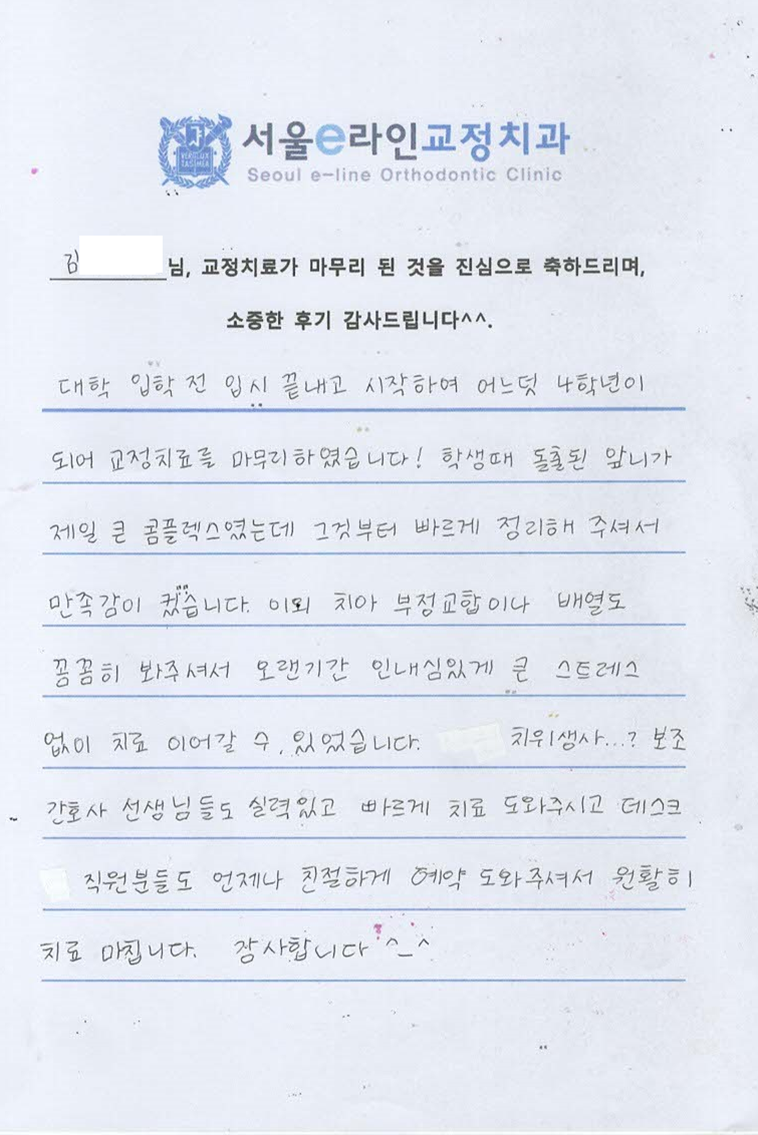 서울e라인교정치과
Seoul e-line Orthodontic Clinic
VERI LUX TAS MEA
김 님, 교정치료가 마무리 된 것을 진심으로 축하드리며,
소중한 후기 감사드립니다^^.
대학 입학 전 입시 끝내고 시작하여 어느덧 4학년이
되어 교정치료를 마무리하였습니다! 학생때 돌출된 앞니가
제일 큰 콤플렉스였는데 그것부터 빠르게 정리해 주셔서
만족감이 컸습니다. 이외 치아 부정교합이나 배열도
꼼꼼히 봐주셔서 오랜기간 인내심있게 큰 스트레스
없이 치료 이어갈 수 있었습니다. 치위생사...? 보조
간호사 선생님들도 실력있고 빠르게 치료 도와주시고 데스크
직원분들도 언제나 친절하게 예약 도와주셔서 원활히
치료 마칩니다. 감사합니다 ^_^